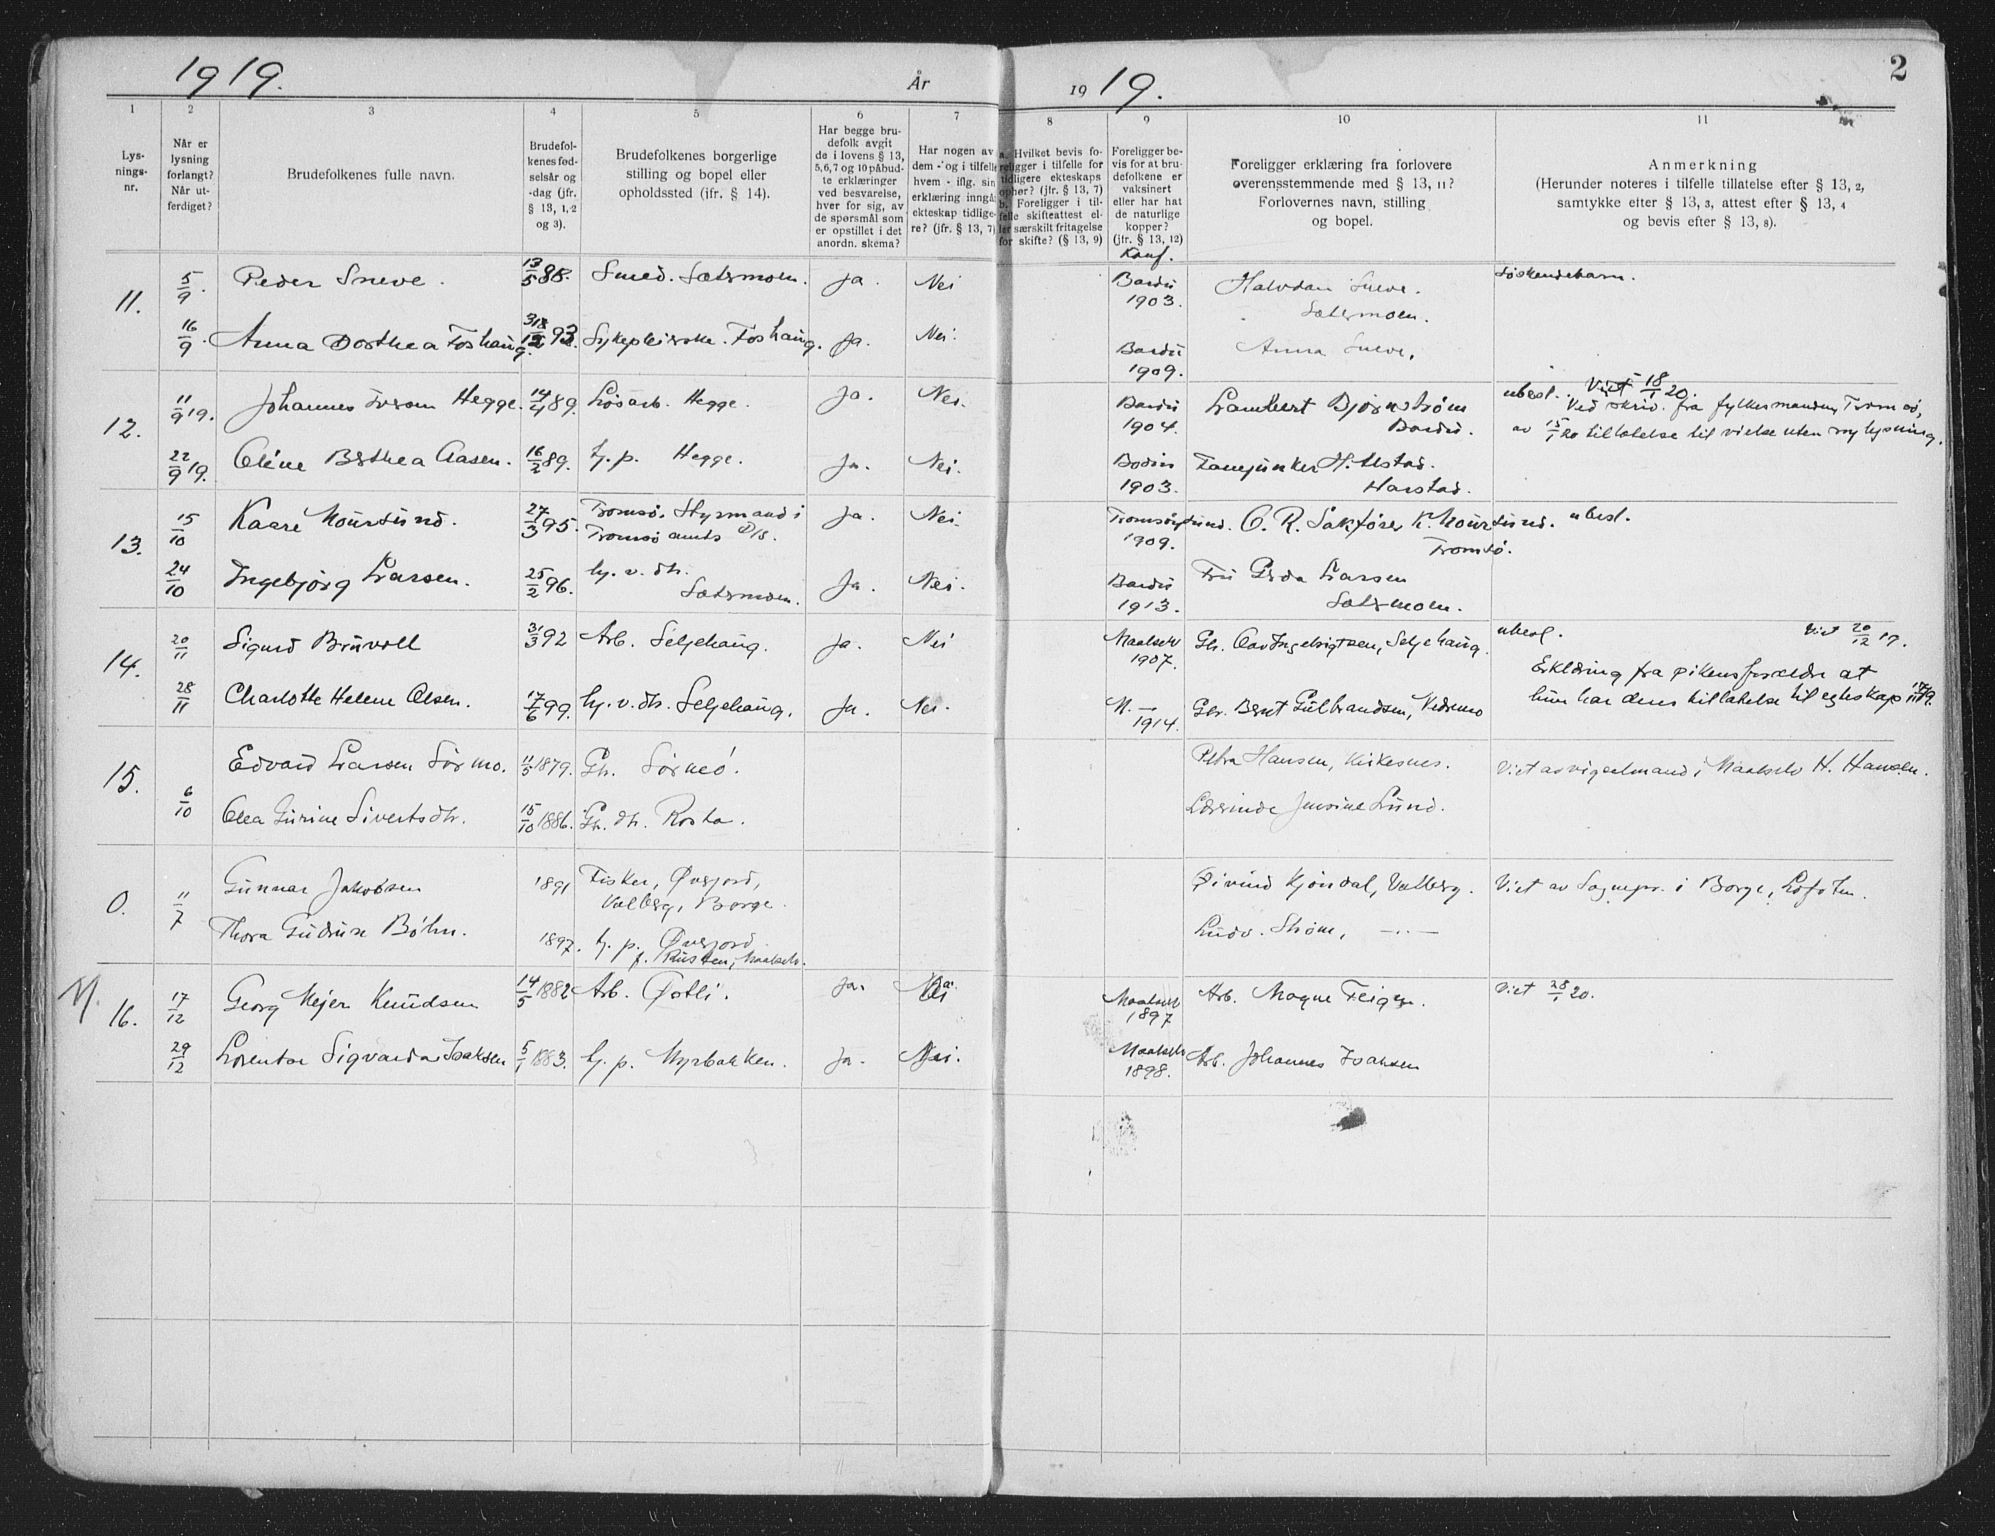 1919.
År
19 19.
2
1 2 3 4 5 6 7 8 9 10 11
Lys-
nings-
nr.
Når er
lysning
forlangt?
Når ut-
ferdiget?
Brudefolkenes fulle navn.
Brudefol-
kenes fød-
selsår og
-dag (jfr.
§ 13, 1,2
og 3).
Brudefolkenes borgerlige
stilling og bopel eller
opholdssted (ifr. § 14).
Har begge bru-
defolk avgit
de i lovens § 13,
5,6,7 og 10 påbud-
te erklæringer
ved besvarelse,
hver for sig, av
de spørsmål som
er opstillet i det
anordn. skema?
Har nogen av
dem - og i tilfelle
hvem - iflg. sin
erklæring inngå
ekteskap tidlige-
re? (jfr. § 13, 7)
a. Hvilket bevis fo-
religger i tilfelle for
tidligere ekteskaps
opher? (jfr. § 13, 7)
b. Foreligger i til-
felle skifteattest el-
ler særskilt fritagelse
for skifte? (§ 13, 9)
Foreligger be-
vis for at bru-
defolkene er
vaksinert
eller har hat
de naturlige
kopper?
(jfr. § 13, 12)
Konf.
Foreligger erklæring fra forlovere
overensstemmende med § 13, 11?
Forlovernes navn, stilling
og bopel.
Anmerkning
(Herunder noteres i tilfelle tillatelse efter § 13, 2,
samtykke efter § 13, 3, attest efter § 13, 4
og bevis efter § 13, 8).
11. 5/9. Peder Sneve. 13/5 88. Smed. Sætermoen. Ja. Nei Bardu 1903. Halvdan Sneve. Sætermoen. Søskendebarn.
16/9. Anna Dorthea Foshaug. 93. Sykepleierske. Foshaug. Ja. Nei. Bardu 1909. Anna Sneve.
12. 11/9 19. Johannes Iversen Hegge. 14/4 89. Løsarb. Hegge. Ja. Nei. Bardu 1904. Lambert Bjørnstrøm Bardu. ubesl. Viet 18/1 20.
Ved skriv. fra fylkesmanden, Tromsø,
av 15/1 20 tillatelse til vielse uten ny lysning.
22/9 19. Oléne Berthea Aasen. 16/2 89. hj. p. Hegge. Ja. Nei. Bodin 1903. Fanejunker H. Alstad. Harstad.
13. 15/10 Kaare Moursund. 27/3 95. Tromsø, Styrmand i
Tromsø amts D/S. Ja. Nei. Tromsøysund. 1909. O. R. Sakfører K. Moursund. Tromsø. ubesl.
24/10 Ingebjørg Larsen. 25/2 96. hj. v. dtr. Sætermoen. Ja. Nei. Bardu 1913. Fru Gerda Larsen Sætermoen.
14. 20/11 Sigurd Bruvoll 31/3 92 Arb. Seljehaug. Ja. Nei Maalselv 1907. Gbr. Oav Ingebrigtsen, Seljehaug. ubesl. Viet 20/12 19.
Erklæring fra pikens forældre at
hun har deres tillatelse til egteskap
28/11 Charlotte Helene Olsen. 17/6 99. hj. v. dtr. Seljehaug. Ja. Nei. M. — 1914. Gbr. Bernt Gulbrandsen, Vedremo
15. 6/10 Edvard Larsen Sørmo. 11/5 1879. Gbr. Sørmo. Petra Hansen, Kirkesnes. Viet av vigselmand i Maalselv H. Hansen.
Olea Gurine Sivertsdtr. 15/10 1886. Gbr. dtr. Rosta. Lærerinde Jensine Lund.
0. 11/7 Gunnar Jakobsen 1891 Fisker, Øresjord,
Valberg, Borge. Øivind Kjøndal, Valberg. Viet av Sognepr. i Borge, Lofoten.
Thora Gudrun Bøhn. 1897. hj. p. Øresjord
f. Rusten, Maalselv. Ludv. Strøm, —"—
16. 17/12 Georg Mejer Knudsen 14/5 1882 Arb. Østli. Ja. Nei Maalselv 1897 Arb. Magne Feiger. Viet 28/1 20.
29/12 Lorentse Sigvarda Isaksen 5/1 1883. hj. p. Myrbakken. Ja. Nei. Maalselv 1898. Arb. Johannes Isaksen